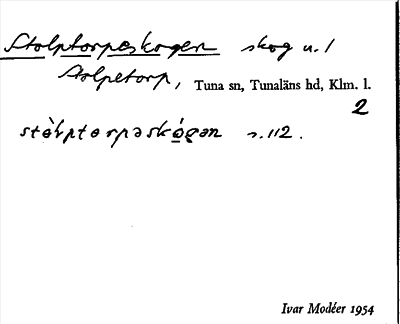 Stolptorpaskogen skog u. 1
Stolpetorp, Tuna sn, Tunaläns hd, Klm. l.
2
stòlptorpaskógən s. 112.
Ivar Modéer 1954